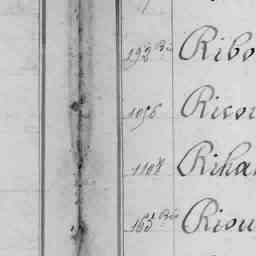 192 Bis Ribo
1056 Ricou
1108 Riha
163 Bis Riou